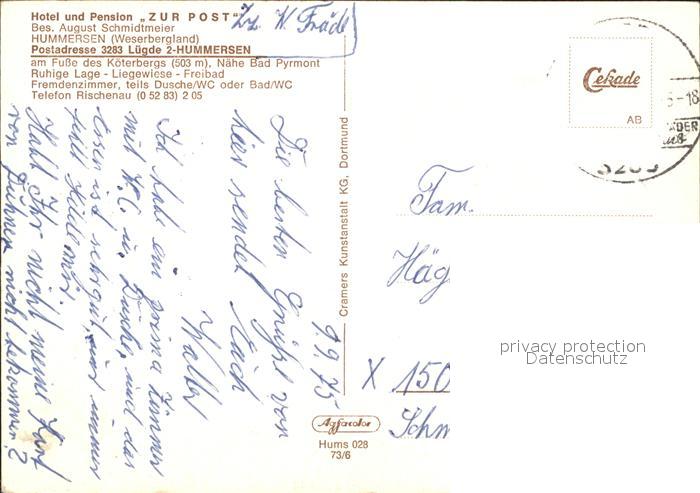 Hotel und Pension „ZUR POST"
Bes. August Schmidtmeier
HUMMERSEN (Weserbergland)
Postadresse 3283 Lügde 2-HUMMERSEN
am Fuße des Köterbergs (503 m), Nähe Bad Pyrmont
Ruhige Lage - Liegewiese - Freibad
Fremdenzimmer, teils Dusche/WC oder Bad/WC
Telefon Rischenau (0 52 83) 2 05
Zz. W. Fräde
9.9.75
Die besten Grüße von
hier sendet Euch
Walter
Ich habe ein prima Zimmer
mit W.C. u. Dusche, und das
Essen ist sehr gut, nur immer
fehlt
Habt Ihr nicht meine Karte
von nicht bekommen?
Cramers Kunstanstalt KG, Dortmund
Agfacolor
Hums 028
73/6
Cekade
AB
Fam.
Häg
X 150
Schm
privacy protection
Datenschutz